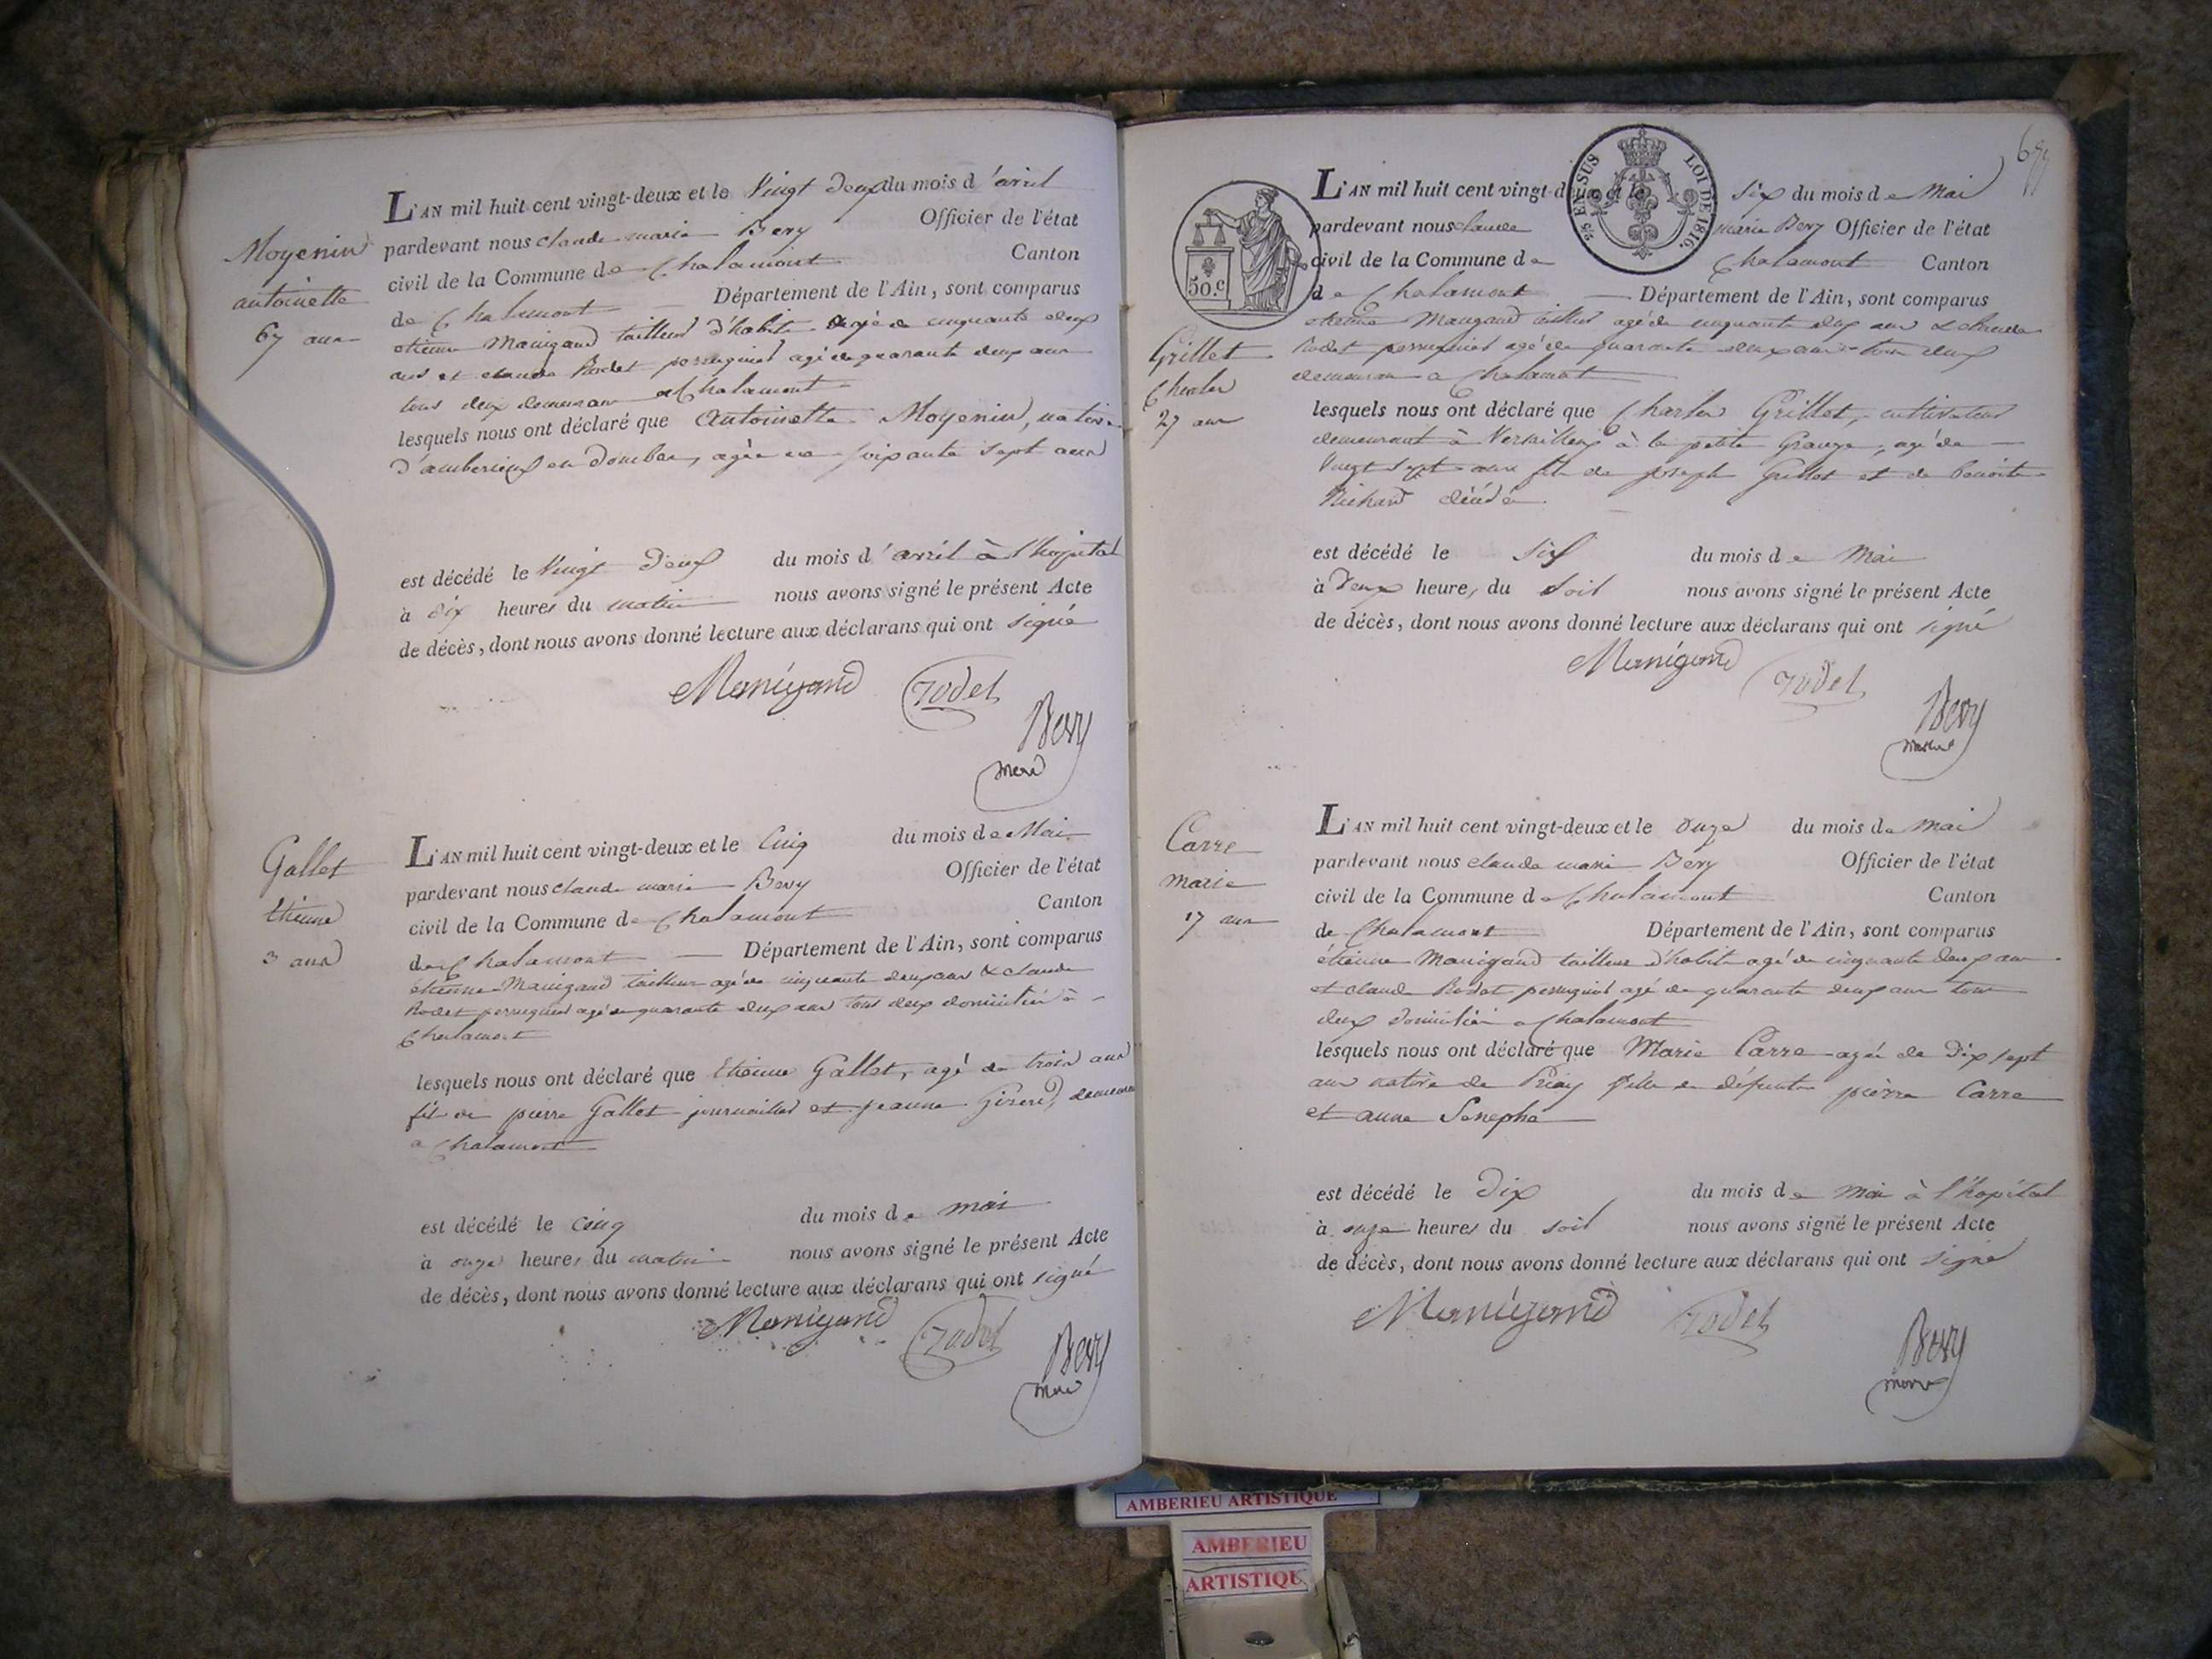 Moyenin
antoinette
67 ans
L'AN mil huit cent vingt-deux et le Vingt deux du mois d'avril
pardevant nous claude marie Bery Officier de l'état
civil de la Commune de Chalamont Canton
de Chalamont Département de l'Ain, sont comparus
etienne Manigand tailleur d'habit agé de cinquante deux
ans et claude Rodet perruquier agé de quarante deux ans
tous deux demeurans a Chalamont
lesquels nous ont déclaré que Antoinette Moyenin, native
d'amberieux en Dombes, agée de soixante sept ans
est décédé le Vingt Deux du mois d'avril à l'hopital
à dix heures du matin nous avons signé le présent Acte
de décès, dont nous avons donné lecture aux déclarans qui ont signé
Manigand rodet
Bery
maire
Gallet
Etienne
3 ans
L'AN mil huit cent vingt-deux et le Cinq du mois de Mai
pardevant nous claude marie Bery Officier de l'état
civil de la Commune de Chalamont Canton
de Chalamont Département de l'Ain, sont comparus
etienne Manigand tailleur agé de cinquante deux ans & claude
Rodet perruquier agé de quarante deux ans tous deux domiciliés à
Chalamont
lesquels nous ont déclaré que Etienne Gallet, agé de trois ans
fils de pierre Gallet journailler et jeanne Girerd,
a Chalamont
est décédé le cinq du mois de mai
à onze heures du matin nous avons signé le présent Acte
de décès, dont nous avons donné lecture aux déclarans qui ont signé
Manigand rodet
Bery
maire
699
5/5 EN SUS LOI DE 1816.
50.c
Grillet
Charles
27 ans
L'AN mil huit cent vingt-deux et le six du mois de Mai
pardevant nous claude marie Bery Officier de l'état
civil de la Commune de Chalamont Canton
de Chalamont Département de l'Ain, sont comparus
etienne Manigand tailleur agé de cinquante deux ans & claude
Rodet perruquier agé de quarante deux ans tous deux
demeurans a Chalamont
lesquels nous ont déclaré que Charles Grillet, cultivateur
demeurant à Versailleux à la petite Grange, agé de
Vingt sept ans fils de joseph Grillet et de benoite
Richard décédés
est décédé le six du mois de Mai
à Deux heures du soir nous avons signé le présent Acte
de décès, dont nous avons donné lecture aux déclarans qui ont signé
Manigand rodet
Bery
maire
Carre
marie
17 ans
L'AN mil huit cent vingt-deux et le onze du mois de mai
pardevant nous claude marie Bery Officier de l'état
civil de la Commune de Chalamont Canton
de Chalamont Département de l'Ain, sont comparus
étienne Manigand tailleur d'habit agé de cinquante deux ans
et claude Rodet perruquier agé de quarante deux ans tous
deux domiciliés a Chalamont
lesquels nous ont déclaré que Marie Carre agée de Dix sept
ans native de Priay fille de défunts pierre Carre
et anne Senepha
est décédé le Dix du mois de Mai à l'hopital
à onze heures du soir nous avons signé le présent Acte
de décès, dont nous avons donné lecture aux déclarans qui ont signé
Manigand rodet
Bery
maire
AMBERIEU ARTISTIQUE
AMBERIEU
ARTISTIQU